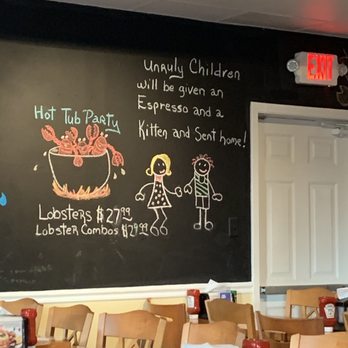 Unruly Children
will be given an
Espresso and a
Kitten and Sent home!
EXIT
Hot Tub Party
Lobsters $27.99
Lobster Combos $29.99